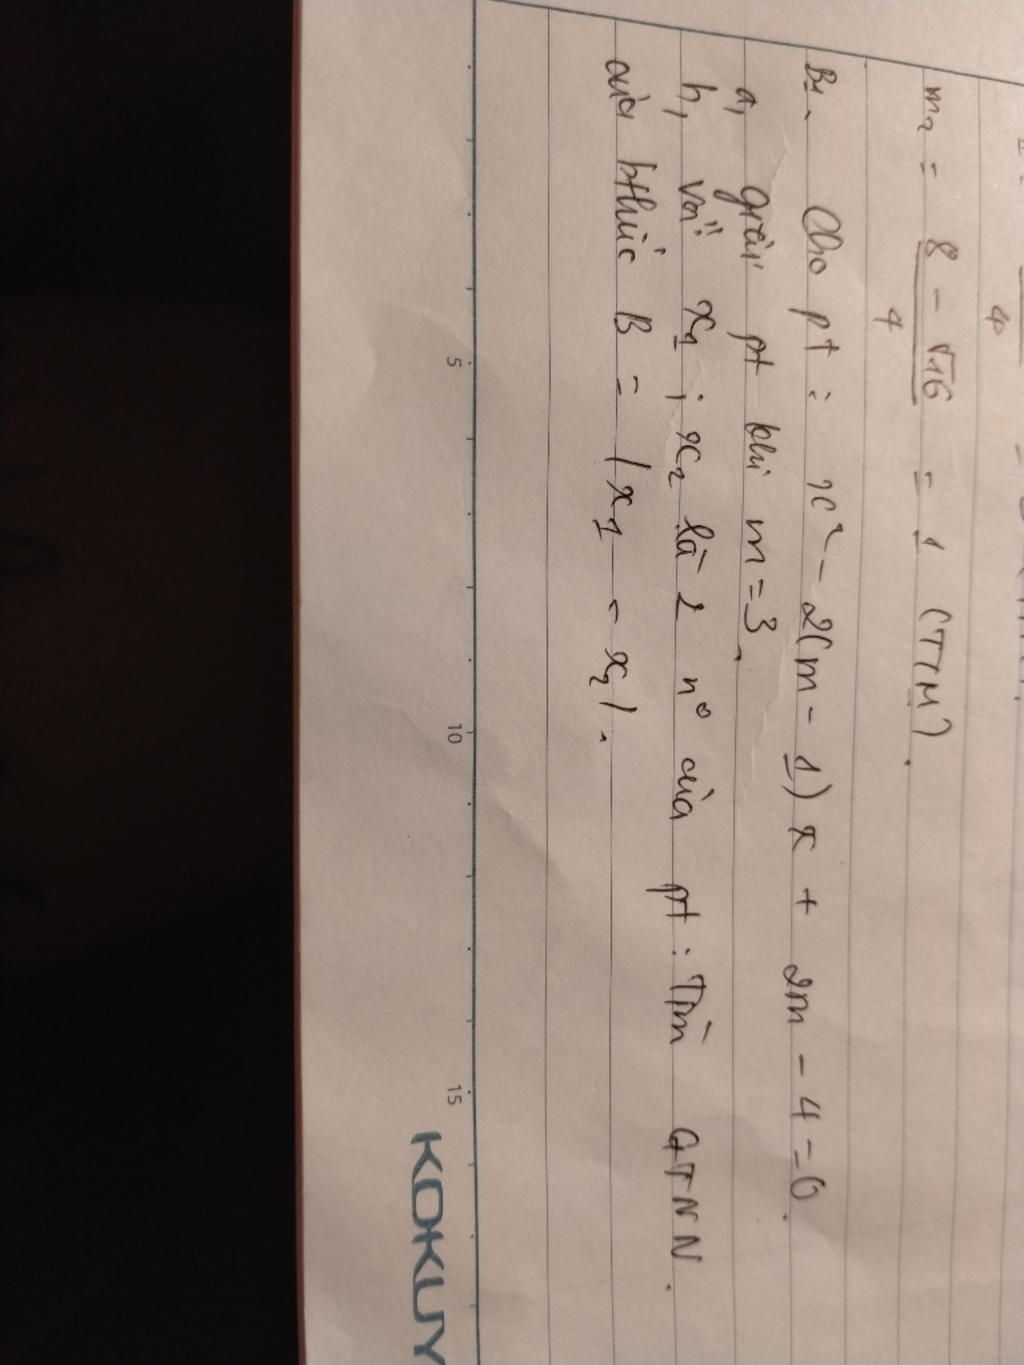 m₂ = (8 - √16)/4 = 1 (TTM).
B1. Cho pt : x² - 2(m - 1)x + 2m - 4 = 0.
a, giải pt khi m = 3.
b, Với x₁ ; x₂ là 2 n⁰ của pt. Tìm GTNN.
của bthức B = |x₁ - x₂|.
5 10 15
KOKUY